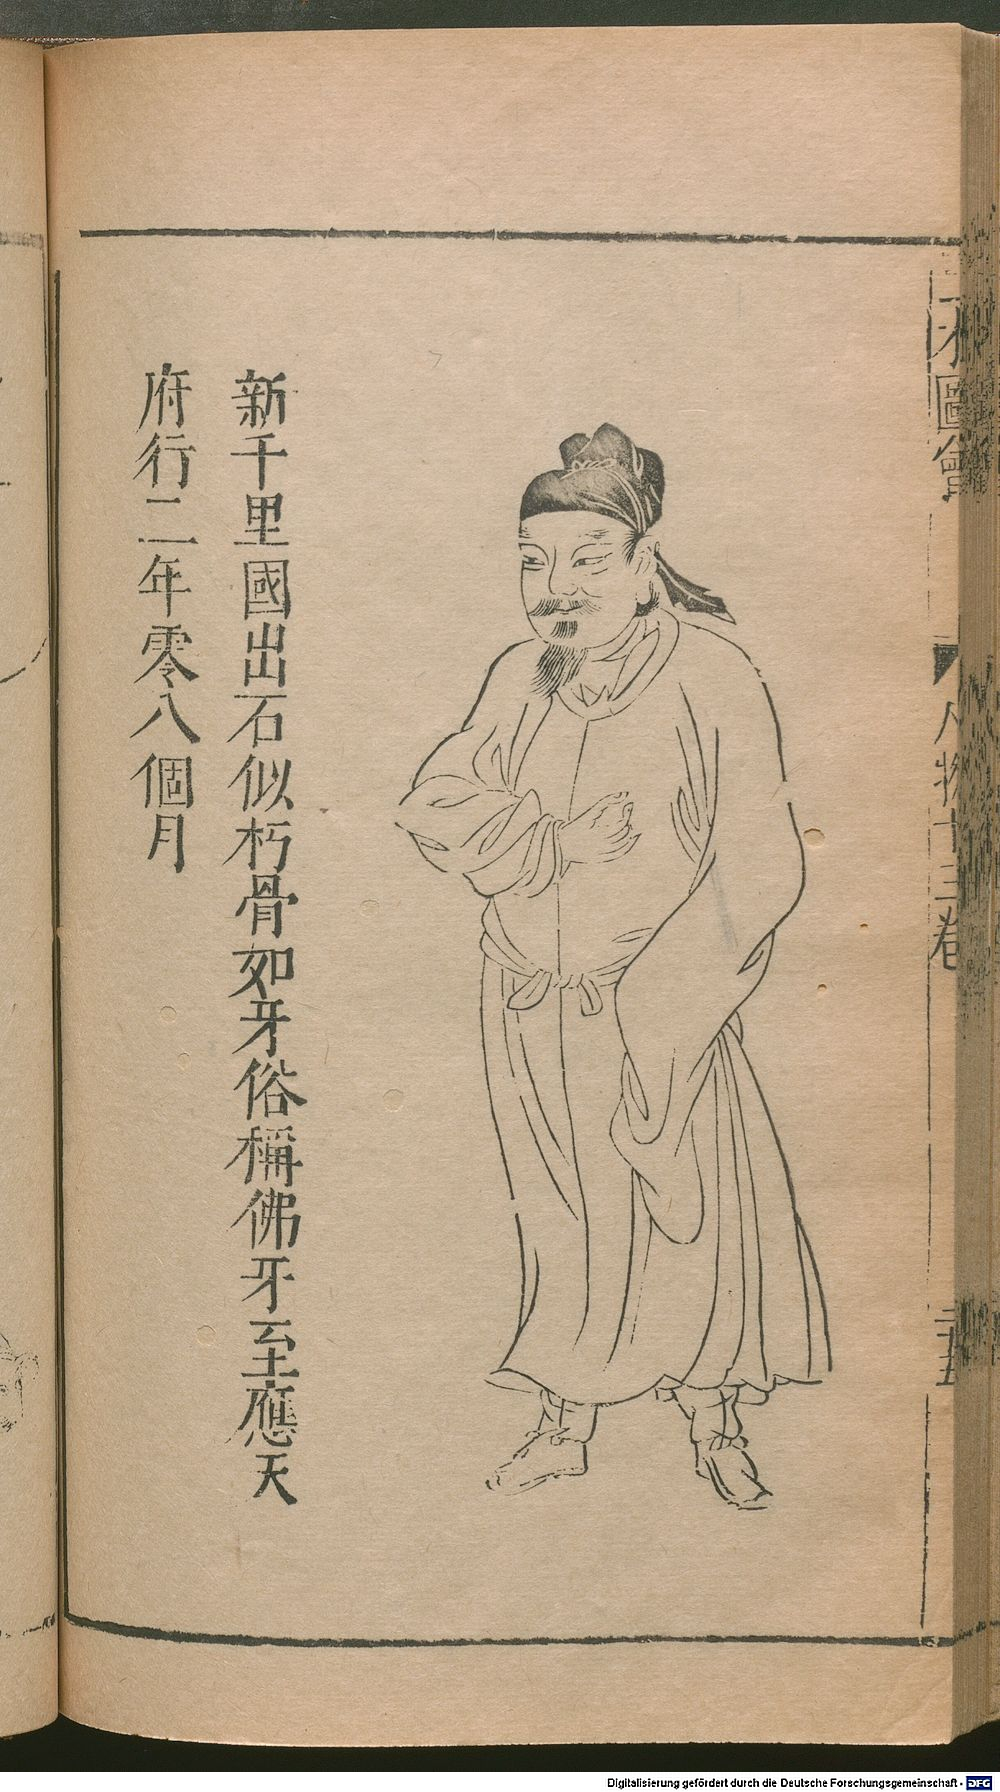 新千里國出石似朽骨如牙俗稱佛牙至應天
府行二年零八個月
圖會
人物十三卷
Digitalisierung gefördert durch die Deutsche Forschungsgemeinschaft - DFG